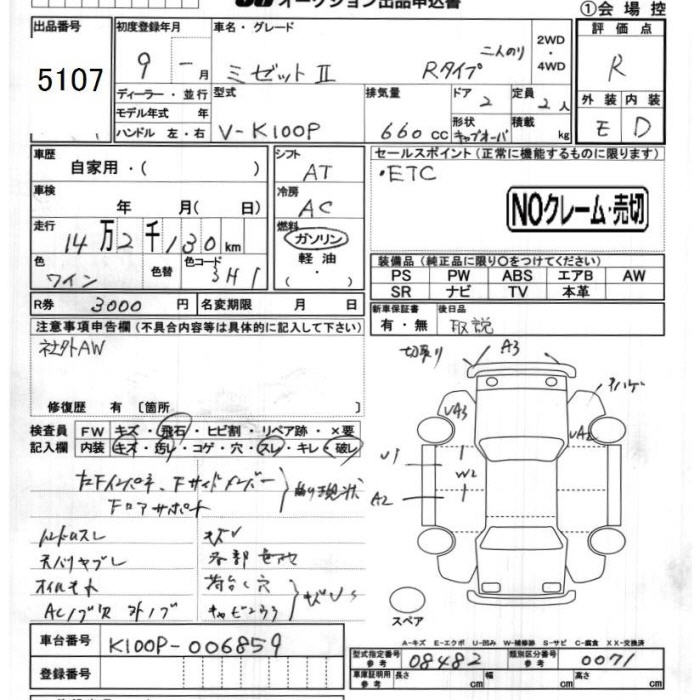 オークション出品申込書
①会場控
出品番号
5107
初度登録年月
9 - 月
車名・グレード
ミゼットⅡ Rタイプ 二人のり
2WD・4WD
評価点
R
外装 内装
E D
ディーラー・並行
モデル年式 年
ハンドル 左・右
型式
V-K100P
排気量
660cc
ドア
2
定員
2人
形状
キャブオーバ
積載
kg
車歴
自家用・( )
シフト
AT
車検
年 月( 日)
冷房
AC
走行
14万2千130km
燃料
ガソリン
軽油
( ・ )
色
ワイン
色替
色コード
3H1
セールスポイント(正常に機能するものに限ります)
・ETC
NOクレーム・売切
装備品(純正品に限り○をつけてください)
PS PW ABS エアB AW
SR ナビ TV 本革
R券 3000円 名変期限 月 日
新車保証書
有・無
後日品
取説
注意事項申告欄(不具合内容等は具体的に記入して下さい)
社外AW
修復歴 有 [箇所 ]
検査員 FW キズ・飛石・ヒビ割・リペア跡・×要
記入欄 内装 キズ・汚レ・コゲ・穴・スレ・キレ・破レ
切取り
A3
UA3
UA2
U1
A3
W2
A2
スペア
車台番号 K100P-006859
登録番号
A-キズ E-エクボ U-凹み W-補修跡 S-サビ C-腐食 XX-交換済
型式指定番号 参考 08482
類別区分番号 参考 0071
車庫証明用 参考 長さ cm 幅 cm 高さ cm